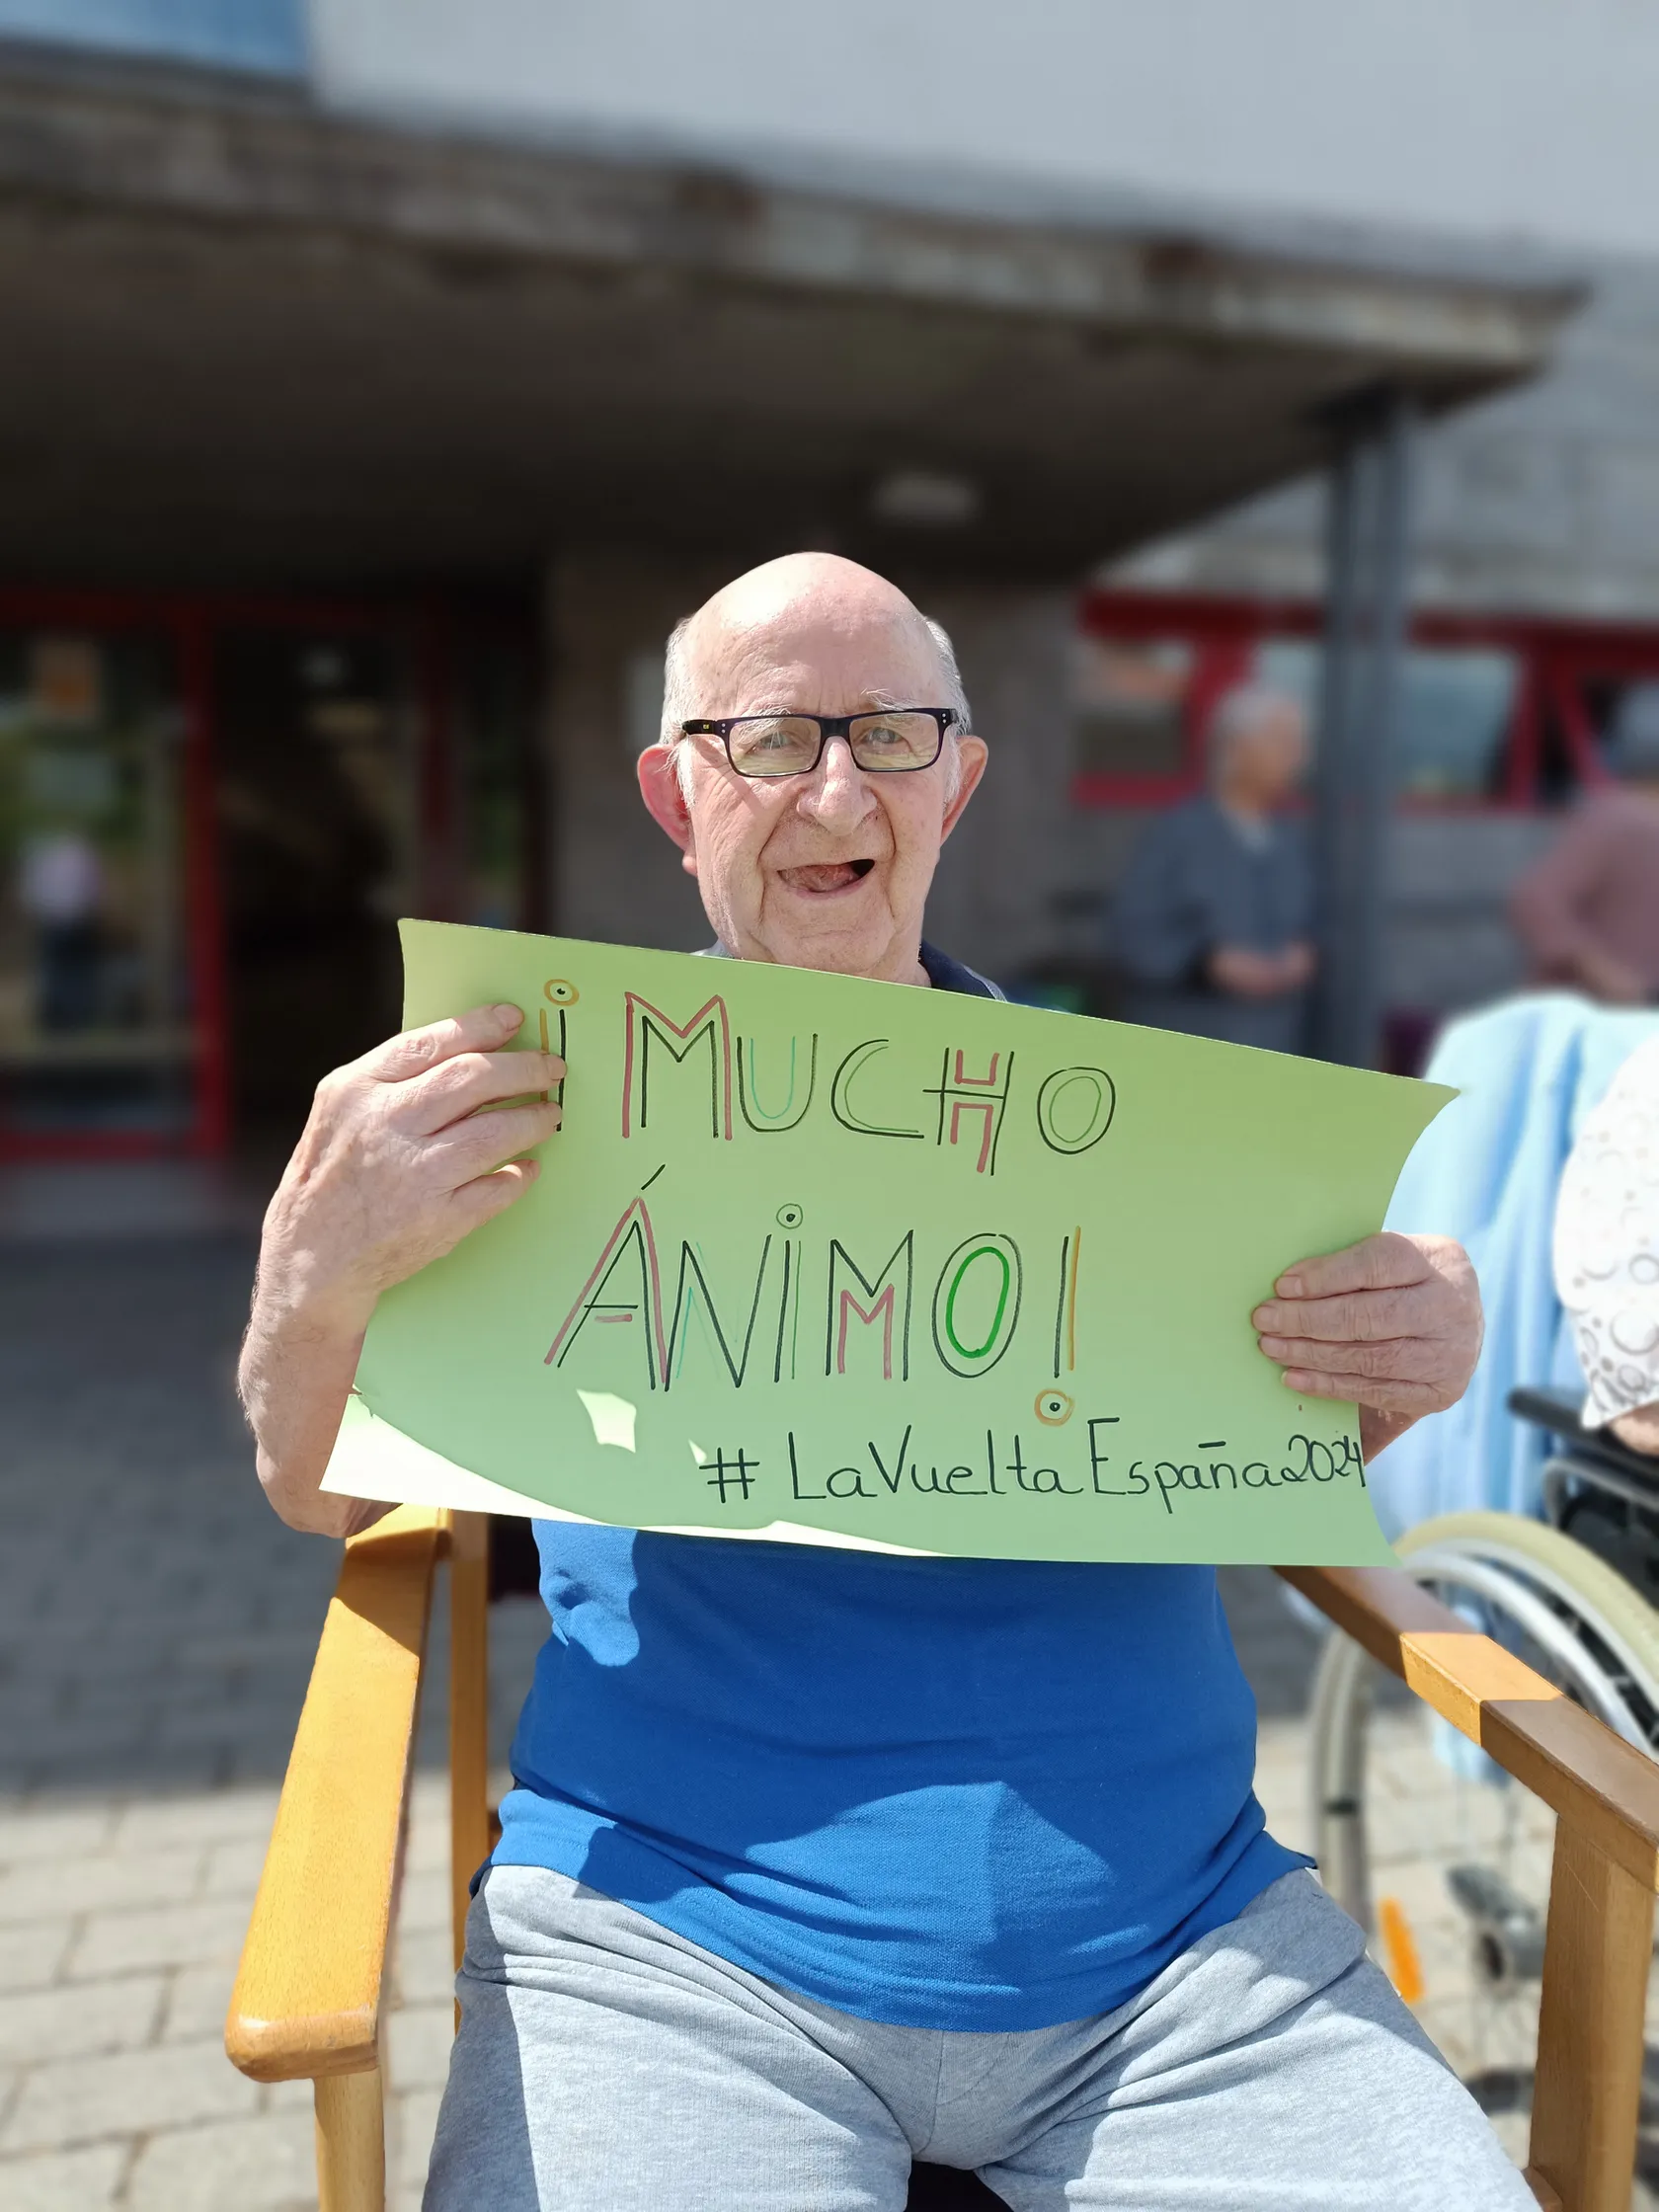 ¡MUCHO
ÁNIMO!
#LaVueltaEspaña2024